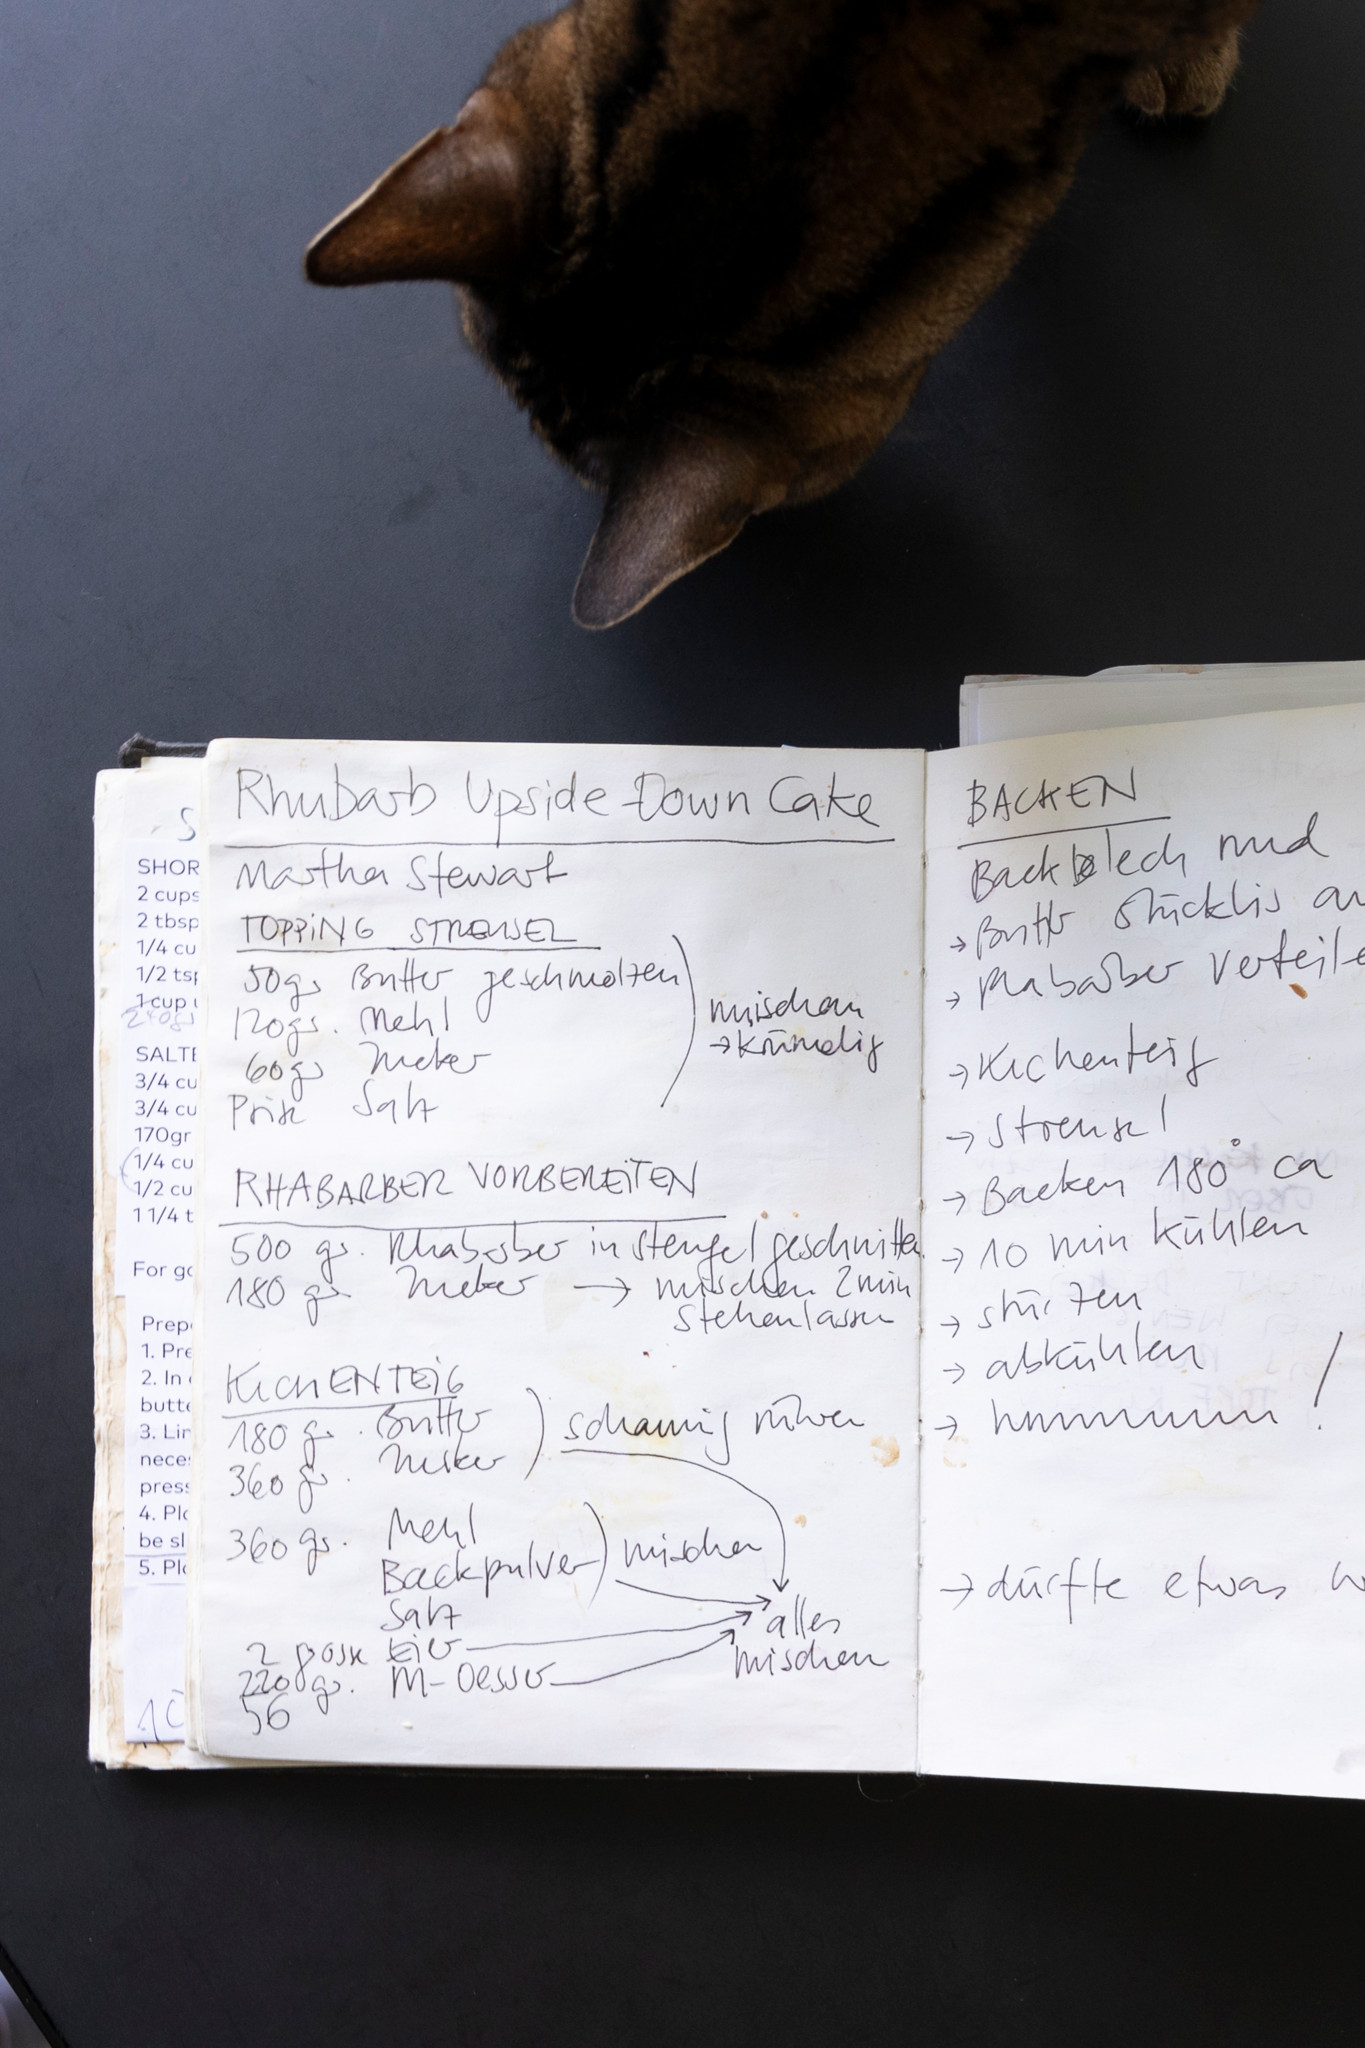 Rhubarb Upside Down Cake
Martha Stewart
TOPPING STREUSEL
50gr Butter geschmolzen
120gr. Mehl
60gr Zucker
Prise Salz
mischen
→ krümelig
RHABARBER VORBEREITEN
500 gr. Rhabarber in stengel geschnitten
180 gr. Zucker → mischen 2min
stehenlassen
KUCHENTEIG
180 gr. Butter
360 gr. Zucker
schaumig rühren
360 gr. Mehl
Backpulver
mischen
Salz
2 grosse Eier
220 gr.
alles
mischen
BACKEN
Backblech rund
→ Butter stücklis
→ Rhabarber verteile
→ Kuchenteig
→ Streusel
→ Backen 180° ca
→ 10 min kühlen
→ stürzen
→ abkühlen
→ hmmmmm!
→ dürfte etwas
SHOR
2 cups
2 tbsp
1/4 cu
1/2 tsp
1 cup u
240gr
SALTE
3/4 cu
3/4 cu
170gr
1/4 cu
1/2 cu
1 1/4 t
For go
Prepa
1. Pre
2. In
butte
3. Lin
neces
press
4. Pla
be sl
5. Pla